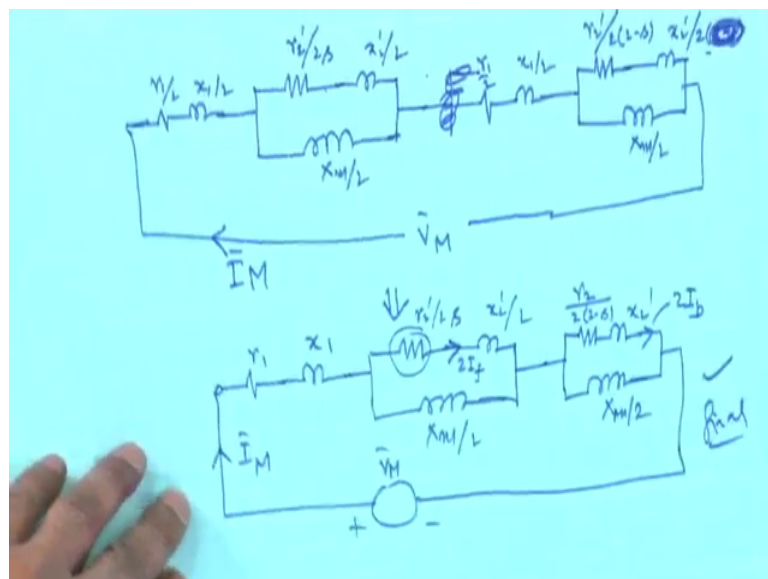 r₁/2 x₁/2 r₂'/2s x₂'/2 r₁/2 x₁/2 r₂'/2(2-s) x₂'/2
x_M/2 x_M/2
V̄_M
Ī_M
r₁ x₁ r₂'/2s x₂'/2 r₂/2(2-s) x₂' 2I_b
2I_f
x_M/2 x_M/2 final
Ī_M V̄_M
+ -